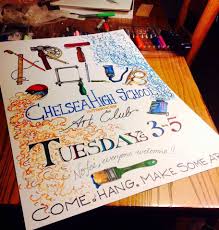 ART
CLUB
CHELSEA HIGH SCHOOL
Art Club
TUESDAYS 3-5
everyone welcome!!
COME. HANG. MAKE SOME AR